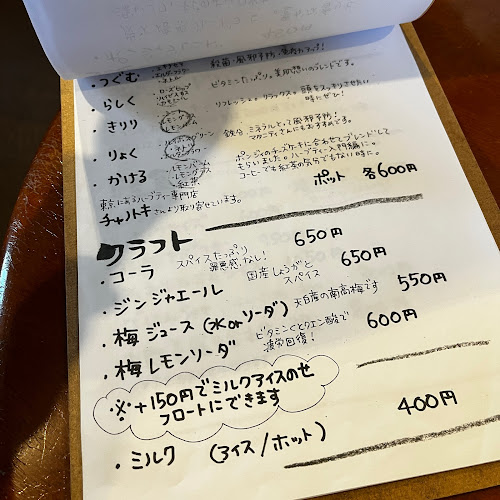 ・つぐむ 殺菌・風邪予防・免疫力アップ!
・らしく ビタミンたっぷり。美肌想いのブレンドです。
・きりり レモングラス リフレッシュ。リラックス。頭をスッキリさせたい時にぜひ!
・りょく 鉄分 ミネラルとって風邪予防!
マタニティさんにもおすすめです。
・かける レモンバーム レモングラス 紅茶 ポンジィのチーズケーキに合わせてブレンドして
もらいました。ハーブティー入門編に。
コーヒーでも紅茶の気分でもない時に。
東京にあるハーブティー専門店
チャノトキさんより取り寄せています。
ポット 各600円
クラフト
・コーラ スパイスたっぷり 罪悪感なし! 650円
・ジンジャエール 国産しょうがとスパイス 650円
・梅ジュース (水orソーダ) 天日産の南高梅です 550円
・梅レモンソーダ ビタミンCとクエン酸で疲労回復! 600円
※+150円でミルクアイスのせ
フロートにできます
・ミルク (アイス/ホット) 400円